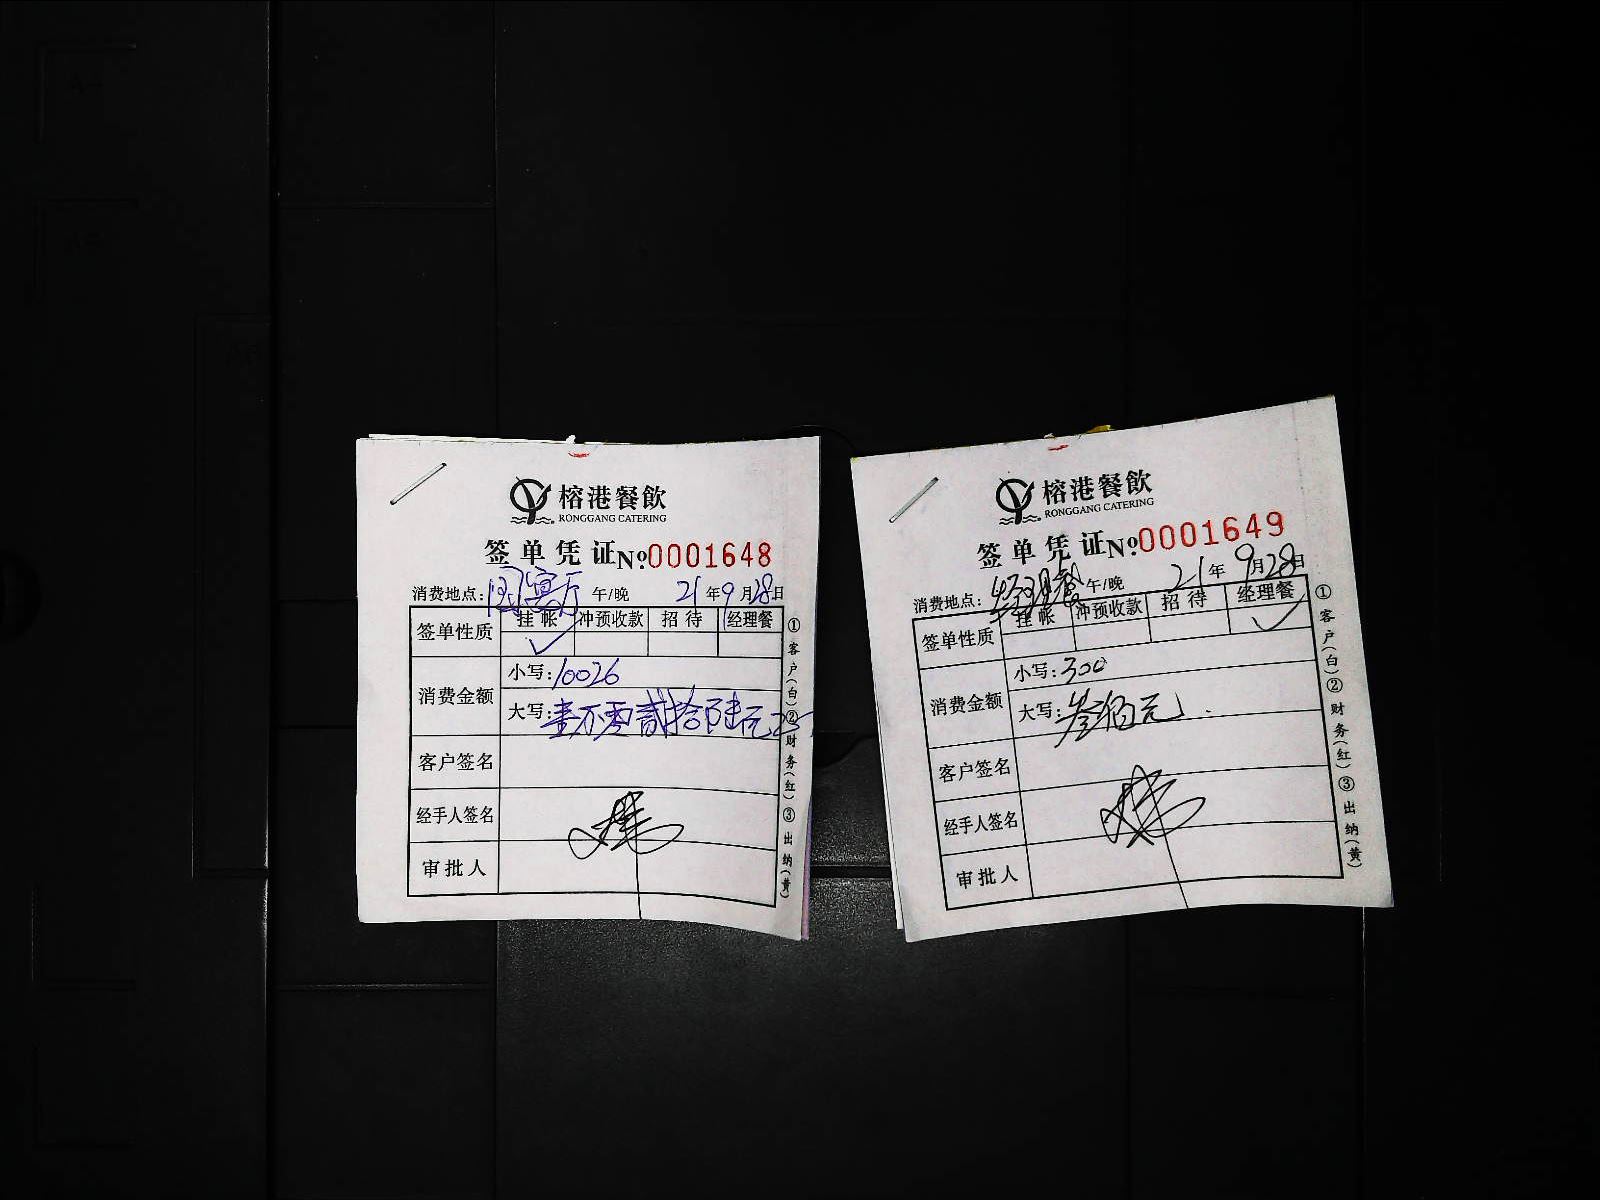 榕港餐飲
RONGGANG CATERING
签单凭证 No.0001648
消费地点: 国宴厅 午/晚 21年9月28日
签单性质 挂帐 冲预收款 招待 经理餐
✓
消费金额 小写:10026
大写:壹万零贰拾陆元
客户签名
经手人签名
审批人
①客户(白)②财务(红)③出纳(黄)
榕港餐飲
RONGGANG CATERING
签单凭证 No.0001649
消费地点: 经理餐 午/晚 21年9月28日
签单性质 挂帐 冲预收款 招待 经理餐
✓
消费金额 小写:300
大写:叁佰元
客户签名
经手人签名
审批人
①客户(白)②财务(红)③出纳(黄)